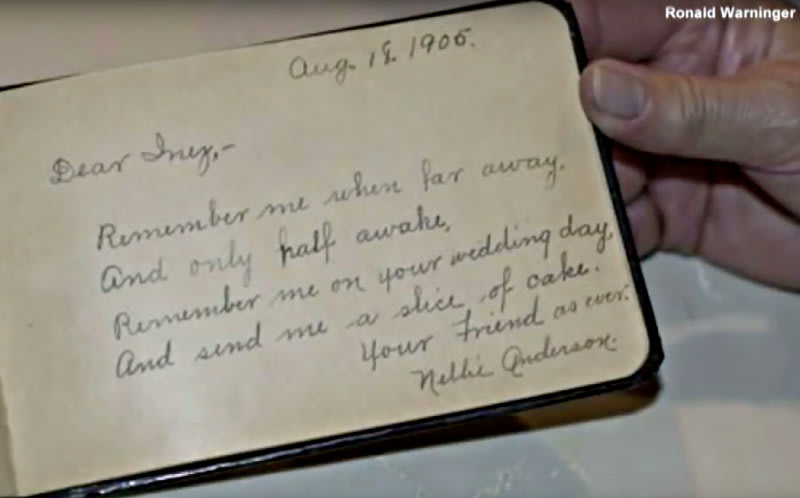 Ronald Warninger
Aug. 18. 1905.
Dear Inez,-
Remember me when far away.
And only half awake,
Remember me on your wedding day,
And send me a slice of cake.
Your Friend as ever.
Nellie Anderson.